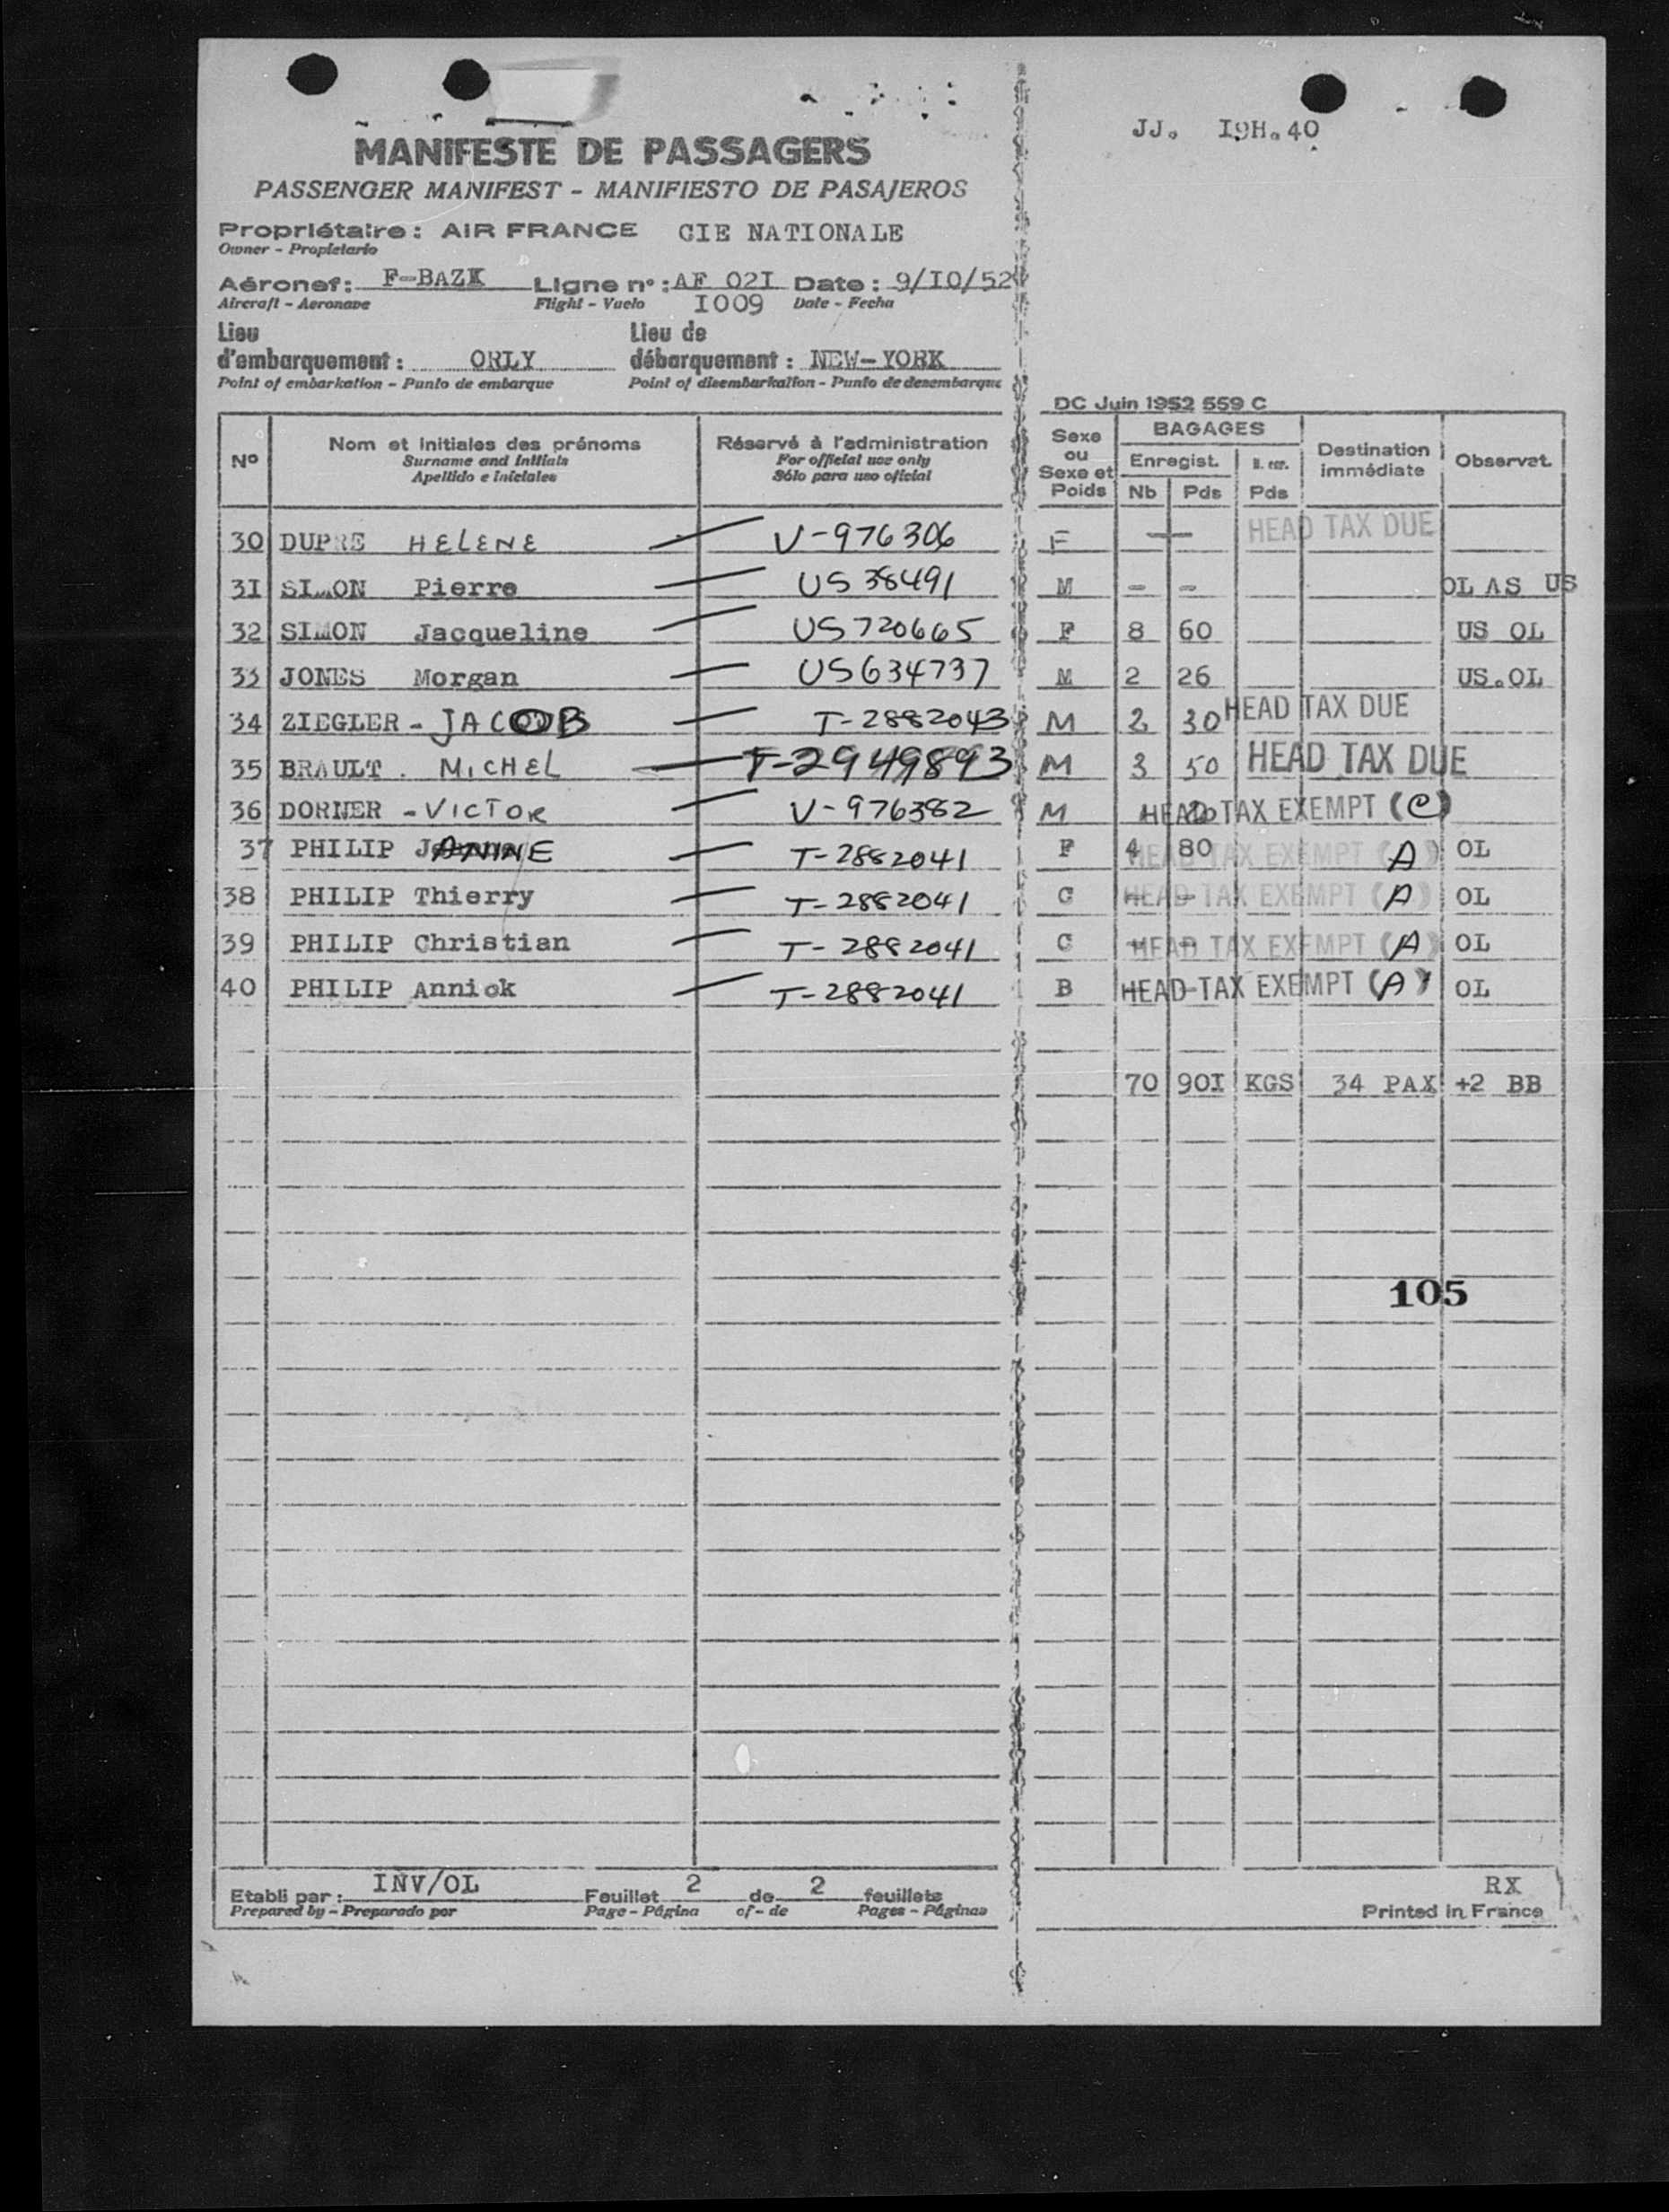 JJ. I9H.40
MANIFESTE DE PASSAGERS
PASSENGER MANIFEST - MANIFIESTO DE PASAJEROS
Propriétaire : AIR FRANCE CIE NATIONALE
Owner - Propietario
Aéronef : F-BAZK Ligne n° : AF 02I Date : 9/IO/52
Aircraft - Aeronave Flight - Vuelo I009 Date - Fecha
Lieu d'embarquement : ORLY Lieu de débarquement : NEW-YORK
Point of embarkation - Punto de embarque Point of disembarkation - Punto de desembarque
DC Juin 1952 559 C
N° Nom et Initiales des prénoms Réservé à l'administration Sexe ou Sexe et Poids BAGAGES Destination immédiate Observat.
Surname and Initials For official use only Enregist.
Apellido e iniciales Sólo para uso oficial Nb Pds Pds
30 DUPRE HELENE V-976306 F — HEAD TAX DUE
3I SIMON Pierre US 38491 M - - OL AS US
32 SIMON Jacqueline US 720665 F 8 60 US OL
33 JONES Morgan US 634737 M 2 26 US.OL
34 ZIEGLER - JACOB T-2882043 M 2 30 HEAD TAX DUE
35 BRAULT . MICHEL T-2949893 M 3 50 HEAD TAX DUE
36 DORNER - VICTOR V-976382 M HEAD TAX EXEMPT (C)
37 PHILIP JANINE T-2882041 F 4 80 HEAD TAX EXEMPT (A) OL
38 PHILIP Thierry T-2882041 C HEAD TAX EXEMPT (A) OL
39 PHILIP Christian T-2882041 C HEAD TAX EXEMPT (A) OL
40 PHILIP Annick T-2882041 B HEAD TAX EXEMPT (A) OL
70 90I KGS 34 PAX +2 BB
105
Etabli par : INV/OL Feuillet 2 de 2 feuillets RX
Prepared by - Preparado por Page - Página of - de Pages - Páginas Printed in France